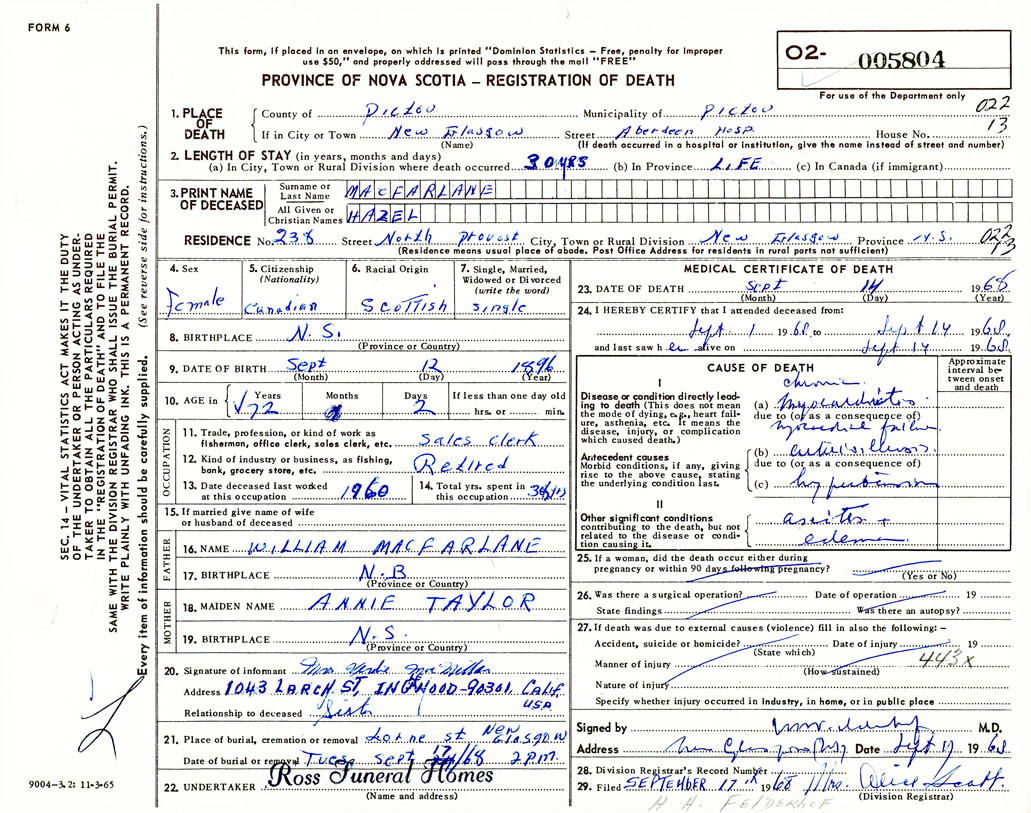 FORM 6
This form, if placed in an envelope, on which is printed "Dominion Statistics — Free, penalty for improper
use $50," and properly addressed will pass through the mail "FREE"
PROVINCE OF NOVA SCOTIA – REGISTRATION OF DEATH
O2- 005804
For use of the Department only
022
13
1. PLACE OF DEATH
County of Pictou Municipality of Pictou
If in City or Town New Glasgow Street Aberdeen Hosp. House No.
(Name) (If death occurred in a hospital or institution, give the name instead of street and number)
2. LENGTH OF STAY (in years, months and days)
(a) In City, Town or Rural Division where death occurred 30 yrs (b) In Province LIFE (c) In Canada (if immigrant)
3. PRINT NAME OF DECEASED
Surname or Last Name MACFARLANE
All Given or Christian Names HAZEL
RESIDENCE No. 238 Street North Provost City, Town or Rural Division New Glasgow Province N.S. 022
13
(Residence means usual place of abode. Post Office Address for residents in rural parts not sufficient)
4. Sex
Female
5. Citizenship
(Nationality)
Canadian
6. Racial Origin
Scottish
7. Single, Married,
Widowed or Divorced
(write the word)
Single
8. BIRTHPLACE N.S.
(Province or Country)
9. DATE OF BIRTH Sept 12 1896
(Month) (Day) (Year)
10. AGE in Years Months Days If less than one day old
72 2 hrs. or min.
OCCUPATION
11. Trade, profession, or kind of work as
fisherman, office clerk, sales clerk, etc. Sales Clerk
12. Kind of industry or business, as fishing,
bank, grocery store, etc. Retired
13. Date deceased last worked
at this occupation 1960
14. Total yrs. spent in
this occupation yrs
15. If married give name of wife
or husband of deceased
FATHER
16. NAME WILLIAM MACFARLANE
17. BIRTHPLACE N.B
(Province or Country)
MOTHER
18. MAIDEN NAME ANNIE TAYLOR
19. BIRTHPLACE N.S.
(Province or Country)
20. Signature of informant Mrs. Verdie MacMillan
Address 1043 LARCH ST, INGWOOD-90301 Calif.
USA
Relationship to deceased Sister
21. Place of burial, cremation or removal Lorne st New Glasgow
Date of burial or removal Tues Sept 17/68 2 P.M.
22. UNDERTAKER Ross Funeral Homes
(Name and address)
MEDICAL CERTIFICATE OF DEATH
23. DATE OF DEATH Sept 14 1968
(Month) (Day) (Year)
24. I HEREBY CERTIFY that I attended deceased from:
Sept. 1 1968 to Sept 14 1968
and last saw her alive on Sept 14 1968
CAUSE OF DEATH
Approximate
interval be-
tween onset
and death
I
Disease or condition directly lead-
ing to death (This does not mean
the mode of dying, e.g., heart fail-
ure, asthenia, etc. It means the
disease, injury, or complication
which caused death.)
chronic
(a) myocarditis
due to (or as a consequence of)
myocardial failure
Antecedent causes
Morbid conditions, if any, giving
rise to the above cause, stating
the underlying condition last.
(b)
due to (or as a consequence of)
(c) hypertension
II
Other significant conditions
contributing to the death, but not
related to the disease or condi-
tion causing it.
ascites +
edema
25. If a woman, did the death occur either during
pregnancy or within 90 days following pregnancy?
(Yes or No)
26. Was there a surgical operation? Date of operation 19
State findings Was there an autopsy?
27. If death was due to external causes (violence) fill in also the following: –
Accident, suicide or homicide? Date of injury 19
(State which)
Manner of injury 443X
(How sustained)
Nature of injury
Specify whether injury occurred in Industry, in home, or in public place
Signed by M.D.
Address New Glasgow Date Sept 17 1968
28. Division Registrar's Record Number
29. Filed SEPTEMBER 17th 1968 Mrs. Alice Scott
(Division Registrar)
H. H. FELDERHOF
SEC. 14 – VITAL STATISTICS ACT MAKES IT THE DUTY
OF THE UNDERTAKER OR PERSON ACTING AS UNDER-
TAKER TO OBTAIN ALL THE PARTICULARS REQUIRED
IN THE "REGISTRATION OF DEATH" AND TO FILE THE
SAME WITH THE DIVISION REGISTRAR WHO SHALL ISSUE THE BURIAL PERMIT.
WRITE PLAINLY WITH UNFADING INK. THIS IS A PERMANENT RECORD.
Every item of information should be carefully supplied. (See reverse side for instructions.)
9004–3.2: 11-3-65